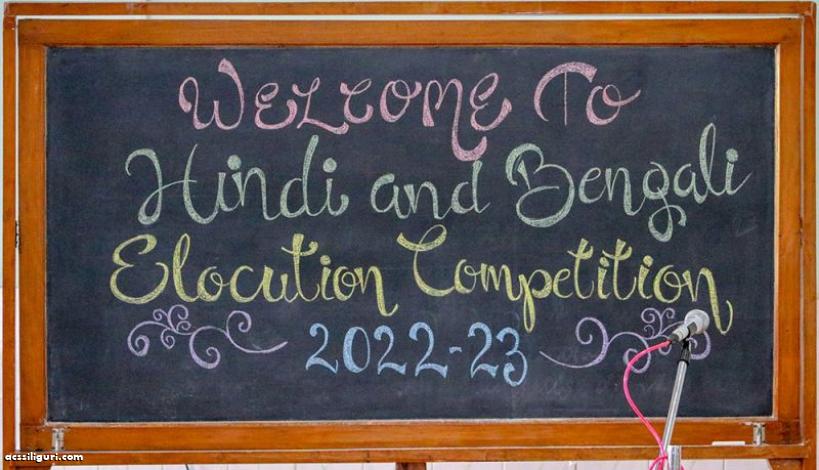 WELCOME TO
Hindi and Bengali
Elocution Competition
2022-23
acssiliguri.com